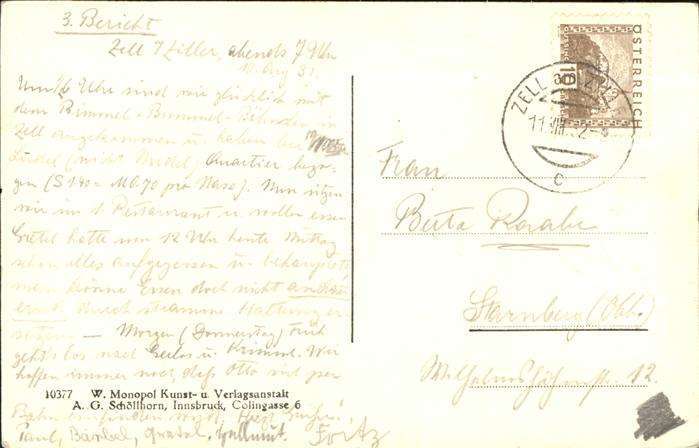 3. Bericht
Zell / Ziller, abends 7 Uhr
Um 1/2 6 Uhr sind wir glücklich mit
dem Bimmel-Bummel- in
Zell angekommen u. haben bei
(nicht Nudel) Quartier bezo-
gen (S 1.40 = M 0.70 pro Nase). Nun sitzen
wir im Restaurant u. wollen essen
Gretel hatte um 12 Uhr heute Mittag
schon alles aufgegessen u. behauptete
man könne Essen doch nicht anders
durch stramme Haltung er-
setzen. — Morgen (Donnerstag) früh
geht's los nach Gerlos u. Krimml. Wir
hoffen immer noch, daß Otto mit per
Bahn
Paul, Bärbel, Gretel, Hellmut. Fritz
10377 W. Monopol Kunst- u. Verlagsanstalt
A. G. Schöllhorn, Innsbruck, Colingasse 6
ÖSTERREICH
10
ZELL
11. VIII.
c
Frau
Berta Raabe
Starnberg (Obb.)
Wilhelmshöhenstr. 12.